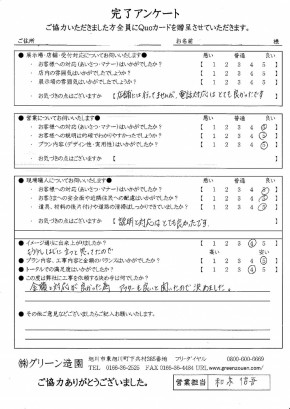 完了アンケート
ご協力いただきました方全員にQuoカードを贈呈させていただきます。
ご住所 お名前 様
● 展示場・店舗・受付対応についてお聞いします● 悪い 普通 良い
・お客様への対応(あいさつ・マナー)はいかがでしたか? 【 1 2 3 4 5 】
・店内の雰囲気はいかがでしたか? 【 1 2 3 4 5 】
・展示場の雰囲気はいかがでしたか? 【 1 2 3 4 5 】
・お気づきの点はございますか 【店舗には行ってませんが、電話対応はとても良かったです
● 営業についてお聞いします● 悪い 普通 良い
・お客様への対応(あいさつ・マナー)はいかがでしたか? 【 1 2 3 4 5 】
・お客様への説明は的確でわかりやすかったでしょうか 【 1 2 3 4 5 】
・プラン内容(デザイン性・実用性)はいかがでしたか? 【 1 2 3 4 5 】
・お気づきの点はございますか 【
● 現場職人についてお聞いします● 悪い 普通 良い
・お客様への対応(あいさつ・マナー)はいかがでしたか? 【 1 2 3 4 5 】
・お客さまへの安全面や近隣住民への配慮はいかがでしたか? 【 1 2 3 4 5 】
・道具、材料の後片付けや道路の清掃はしっかりできていましたか? 【 1 2 3 4 5 】
・お気づきの点はございますか 【 説明も対応はとても良かったです。
● イメージ通りに出来上がりましたか? 1 2 3 4 5 】
高い 安い
● プラン内容、工事内容と金額のバランスはいかがでしたか? 【 1 2 3 4 5 】
● トータルでの満足度はいかがでしたか? 【 1 2 3 4 5 】
● この度は弊社に工事を依頼する決め手は何でしたか?
金額と対応が良かった為
決めました。
● その他ご意見などございましたらご記入お願いいたします。
㈱グリーン造園
旭川市東旭川町下兵村365番地 フリーダイヤル 0800-600-0669
TEL 0166-36-2525 FAX 0166-36-4484 URL www.greenzouen.com/
ご協力ありがとうございました。 営業担当